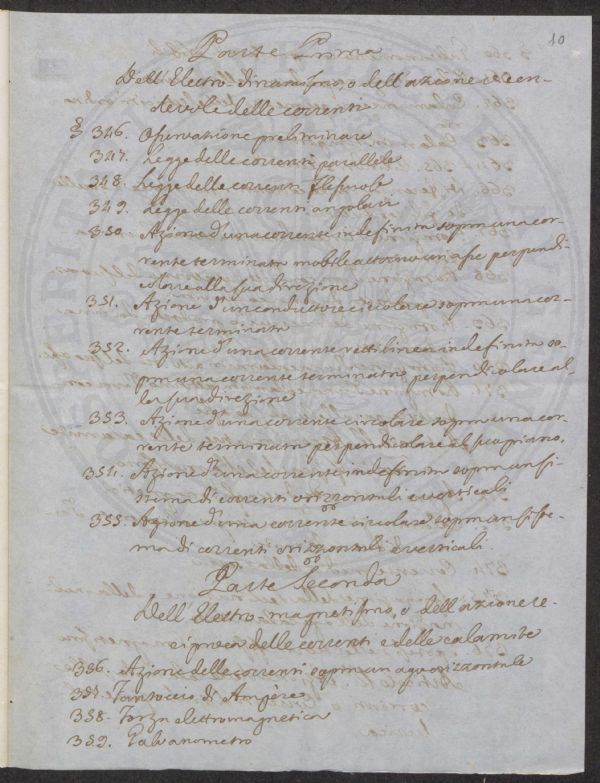 10
Parte Prima
Dell'Elettro-dinamismo, o dell'azione
delle correnti
§ 346. Osservazione preliminare
347. Legge delle correnti parallele
348. Legge delle correnti flessuose
349. Legge delle correnti angolari
350. Azione d'una corrente indefinita sopra una cor-
rente terminata mobile attorno un asse perpendi-
colare alla sua direzione
351. Azione d'un conduttore circolare sopra una cor-
rente terminata
352. Azione d'una corrente rettilinea indefinita so-
pra una corrente terminata perpendicolare al-
la sua direzione
353. Azione d'una corrente circolare sopra una cor-
rente terminata perpendicolare al suo piano.
354. Azione d'una corrente indefinita sopra un si-
stema di correnti orizzontali e verticali
355. Azione d'una corrente circolare sopra un siste-
ma di correnti orizzontali e verticali.
Parte Seconda
Dell'Elettro-magnetismo, o dell'azione re-
ciproca delle correnti e delle calamite
356. Azione delle correnti sopra un ago orizzontale
357. Fantoccio di Ampère
358. Forza elettromagnetica
359. Galvanometro